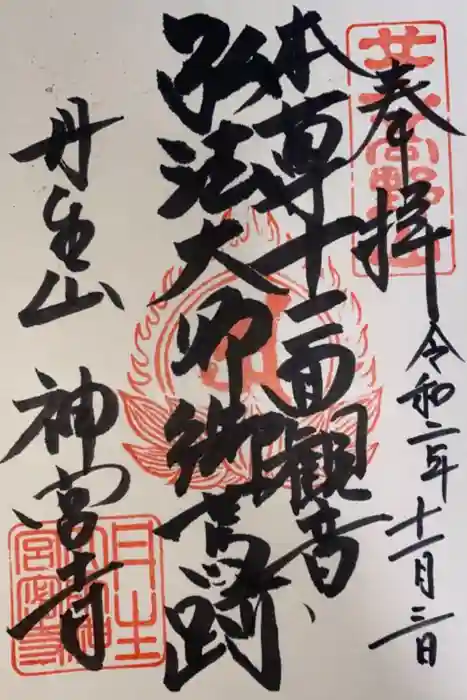 奉拝
令和二年十一月三日
本尊十一面観音
弘法大師御舊跡
丹生山
神宮寺